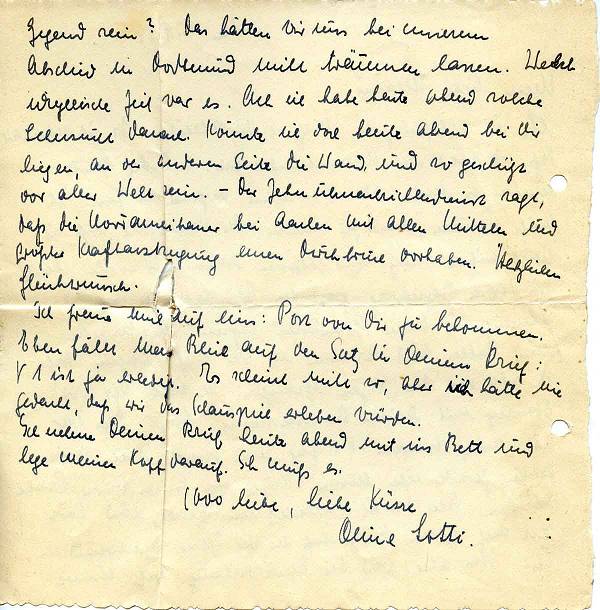 Gegend sein? Das hätten wir uns bei unserem
Abschied in Dortmund nicht träumen lassen. Welch
idyllische Zeit war es. Ach ich habe heute abend solche
Sehnsucht danach. Könnte ich doch heute abend bei Dir
liegen, an der anderen Seite die Wand, und so geschützt
vor aller Welt sein. – Der Zehnuhrnachrichtendienst sagt,
daß die Nordamerikaner bei Aachen mit allen Mitteln und
größter Kraftanstrengung einen Durchbruch vorhaben. Herzlichen
Glückwunsch.
Ich freue mich auf eins: Post von Dir zu bekommen.
Eben fällt mein Blick auf den Satz in Deinem Brief:
V 1 ist ja erledigt. Es scheint mich so, aber ich hätte nie
gedacht, daß wir das Schauspiel erleben würden.
Ich nehme Deinen Brief heute abend mit ins Bett und
lege meinen Kopf darauf. Ich muß es.
1000 liebe, liebe Küsse
Deine Lotti.